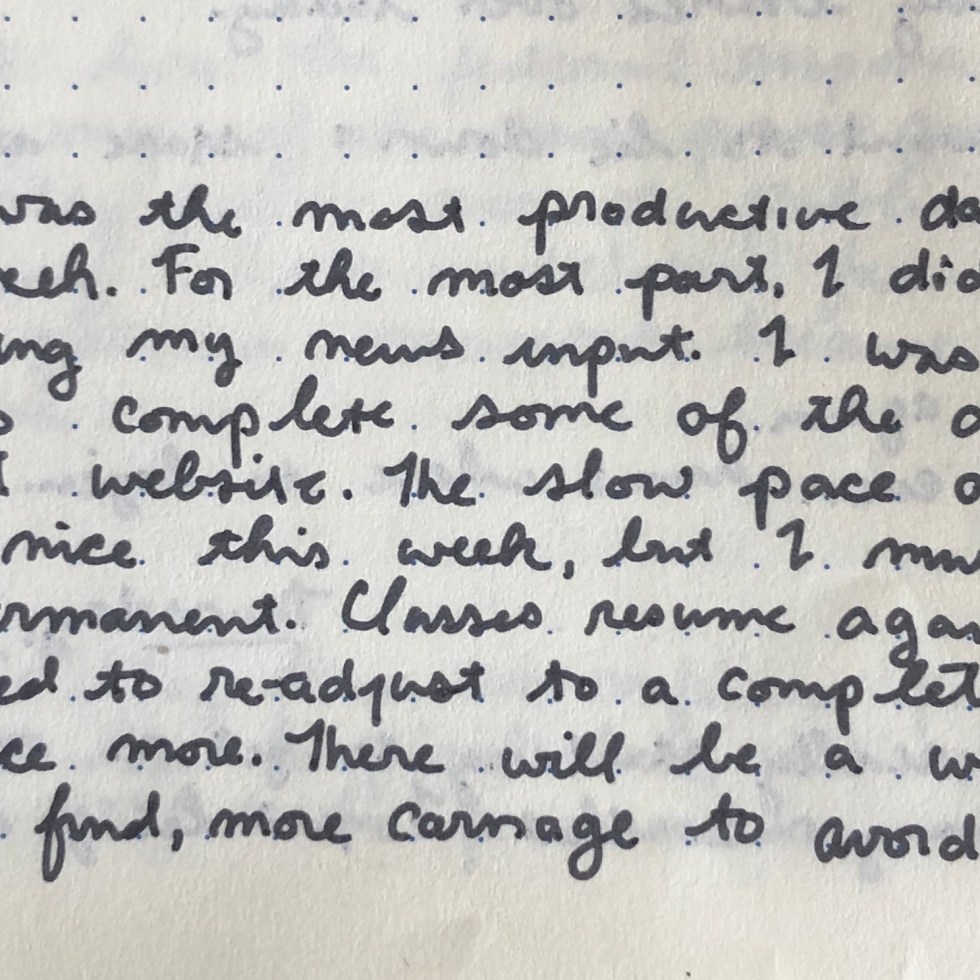 was the most productive da
eek. For the most part, I did
ing my news input. I was
complete some of the
website. The slow pace
nice this week, but I mu
ermanent. Classes resume aga
ed to re-adjust to a complet
ce more. There will be a w
find, more carnage to avoid